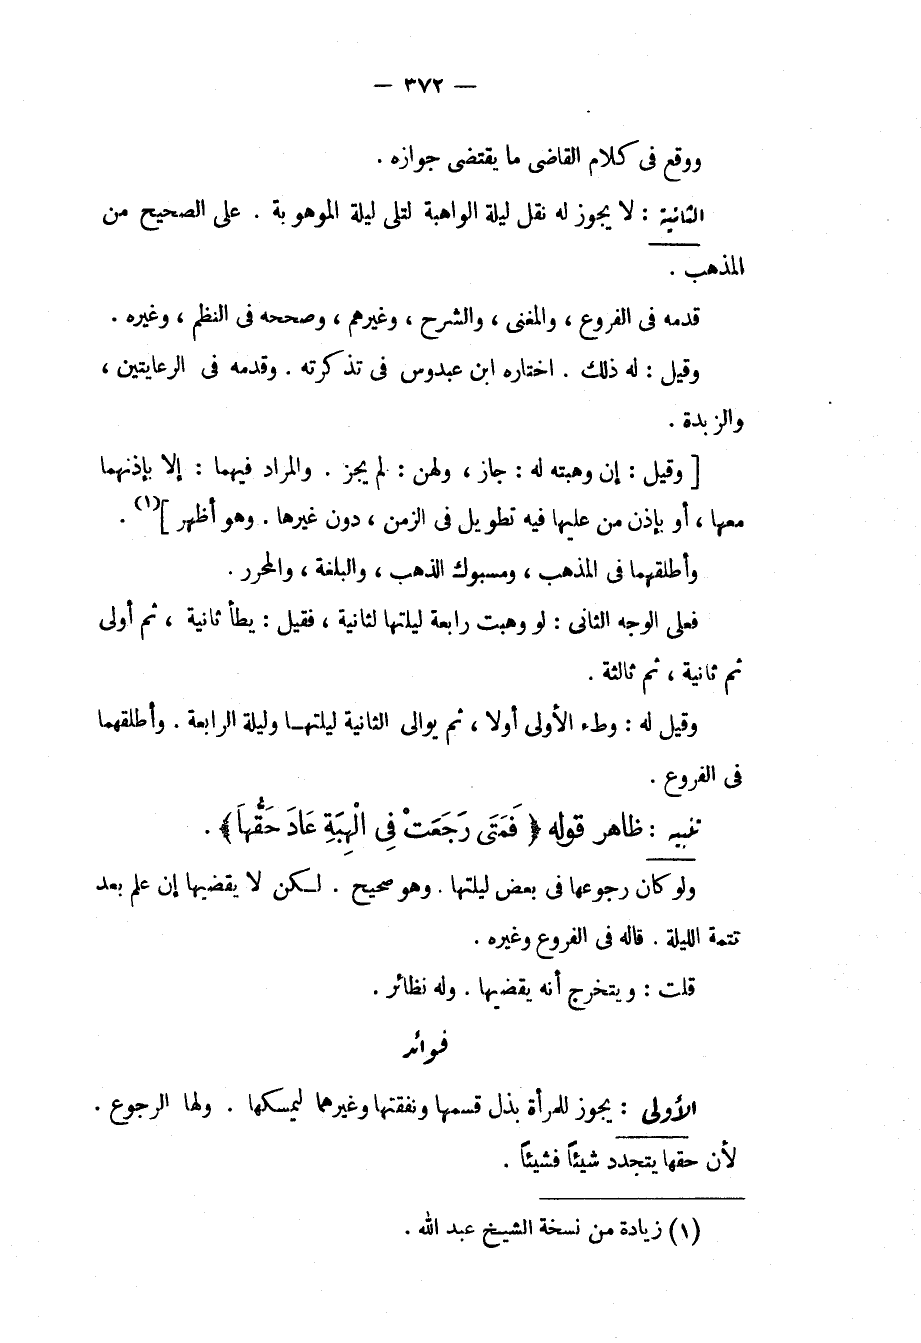 — ٣٧٢ —
ووقع فى كلام القاضى ما يقتضى جوازه .
الثانية : لا يجوز له نقل ليلة الواهبة لتلى ليلة الموهوبة . على الصحيح من
المذهب .
قدمه فى الفروع ، والمغنى ، والشرح ، وغيرهم ، وصححه فى النظم ، وغيره .
وقيل : له ذلك . اختاره ابن عبدوس فى تذكرته . وقدمه فى الرعايتين ،
والزبدة .
[ وقيل : إن وهبته له : جاز ، ولهن : لم يجز . والمراد فيهما : إلا بإذنهما
معها ، أو بإذن من عليها فيه تطويل فى الزمن ، دون غيرها . وهو أظهر ](١) .
وأطلقهما فى المذهب ، ومسبوك الذهب ، والبلغة ، والمحرر .
فعلى الوجه الثانى : لو وهبت رابعة ليلتها لثانية ، فقيل : يطأ ثانية ، ثم أولى
ثم ثانية ، ثم ثالثة .
وقيل له : وطء الأولى أولا ، ثم يوالى الثانية ليلتهـا وليلة الرابعة . وأطلقهما
فى الفروع .
تنبيه : ظاهر قوله ﴿ فَمَتَى رَجَعَتْ فِى الْهِبَةِ عَادَ حَقُّهَا ﴾ .
ولو كان رجوعها فى بعض ليلتها . وهو صحيح . لـكن لا يقضيها إن علم بعد
تتمة الليلة . قاله فى الفروع وغيره .
قلت : ويتخرج أنه يقضيها . وله نظائر .
فوائد
الأولى : يجوز للمرأة بذل قسمها ونفقتها وغيرهما ليمسكها . ولها الرجوع .
لأن حقها يتجدد شيئاً فشيئاً .
(١) زيادة من نسخة الشيخ عبد الله .